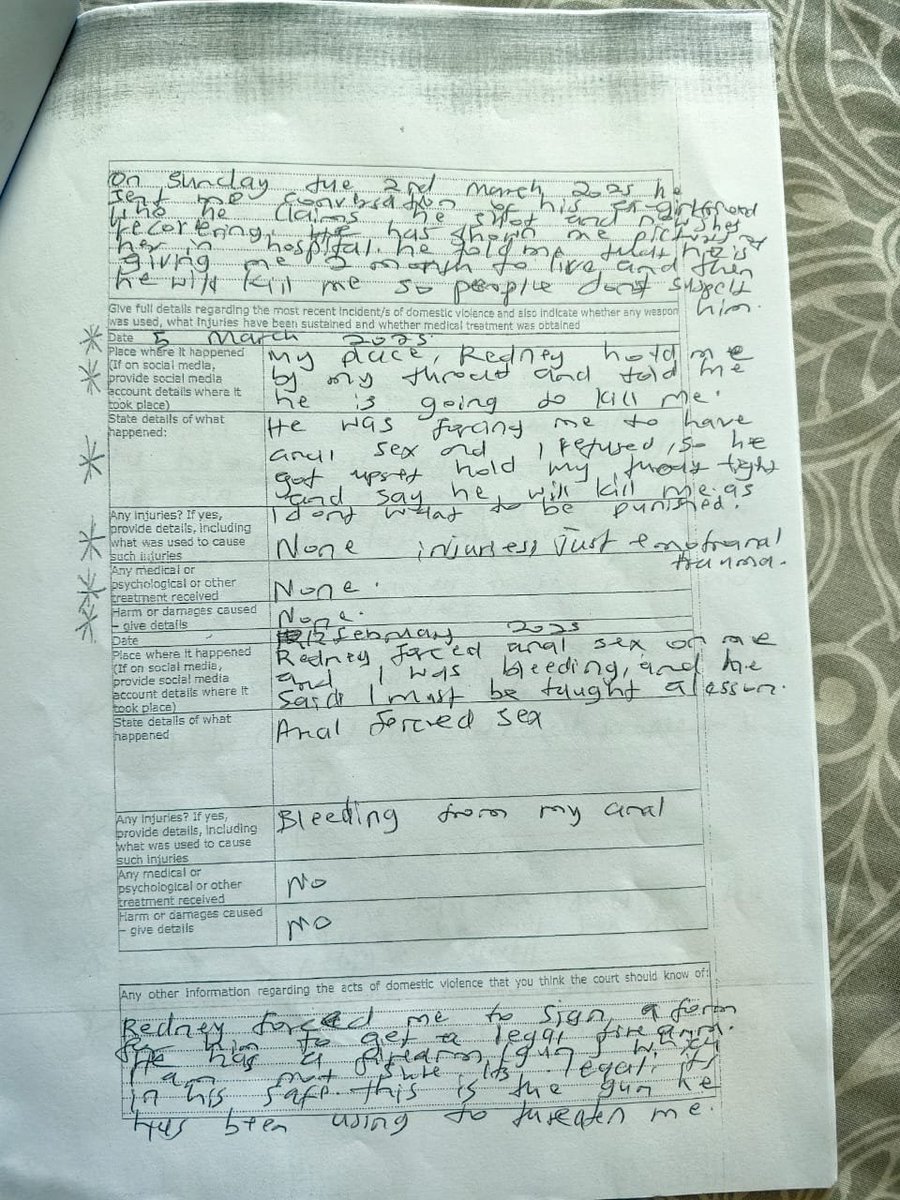 On Sunday the 2nd March 2025 he
sent me of his ex-girlfriend
who he claims he shot and now shes
recovering, He has shown me pictures of
her in hospital. he told me that he is
giving me 2 month to live, and then
he will kill me so people dont susject
him.
Give full details regarding the most recent incident/s of domestic violence and also indicate whether any weapon
was used, what injuries have been sustained and whether medical treatment was obtained
Date 5 March 2025
Place where it happened
(If on social media,
provide social media
account details where it
took place)
my place, Redney hold me
by my throat and told me
he is going to kill me.
State details of what
happened:
He was forcing me to have
anal sex and I refused, so he
got upset hold my tight
and say he will kill me as
I dont want to be punished.
Any injuries? If yes,
provide details, including
what was used to cause
such injuries
None injuries, Just emotional
trauma.
Any medical or
psychological or other
treatment received
None.
Harm or damages caused
– give details
None.
Date 12 February 2025
Place where it happened
(If on social media,
provide social media
account details where it
took place)
Redney forced anal sex on me
and I was bleeding, and he
said I must be taught a lesson.
State details of what
happened
Anal forced sex
Any injuries? If yes,
provide details, including
what was used to cause
such injuries
Bleeding from my anal
Any medical or
psychological or other
treatment received
No
Harm or damages caused
– give details
NO
Any other information regarding the acts of domestic violence that you think the court should know of:
Redney forced me to sign a form
for him to get a legal firearm.
He has a firearm (gun) which
I am not sure its legal. its
in his safe. this is the gun he
Has been using to threaten me.